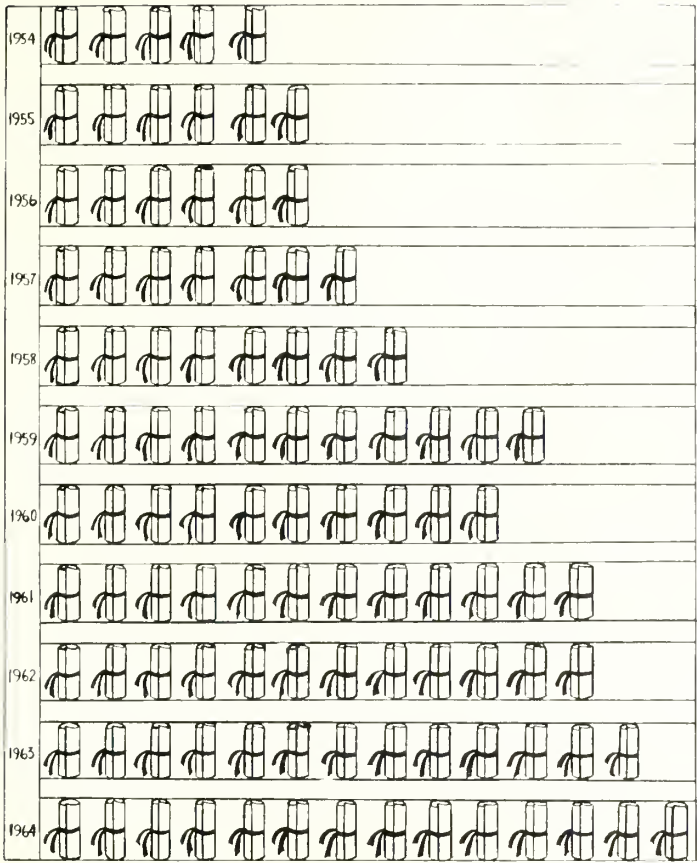 1954
1955
1956
1957
1958
1959
1960
1961
1962
1963
1964